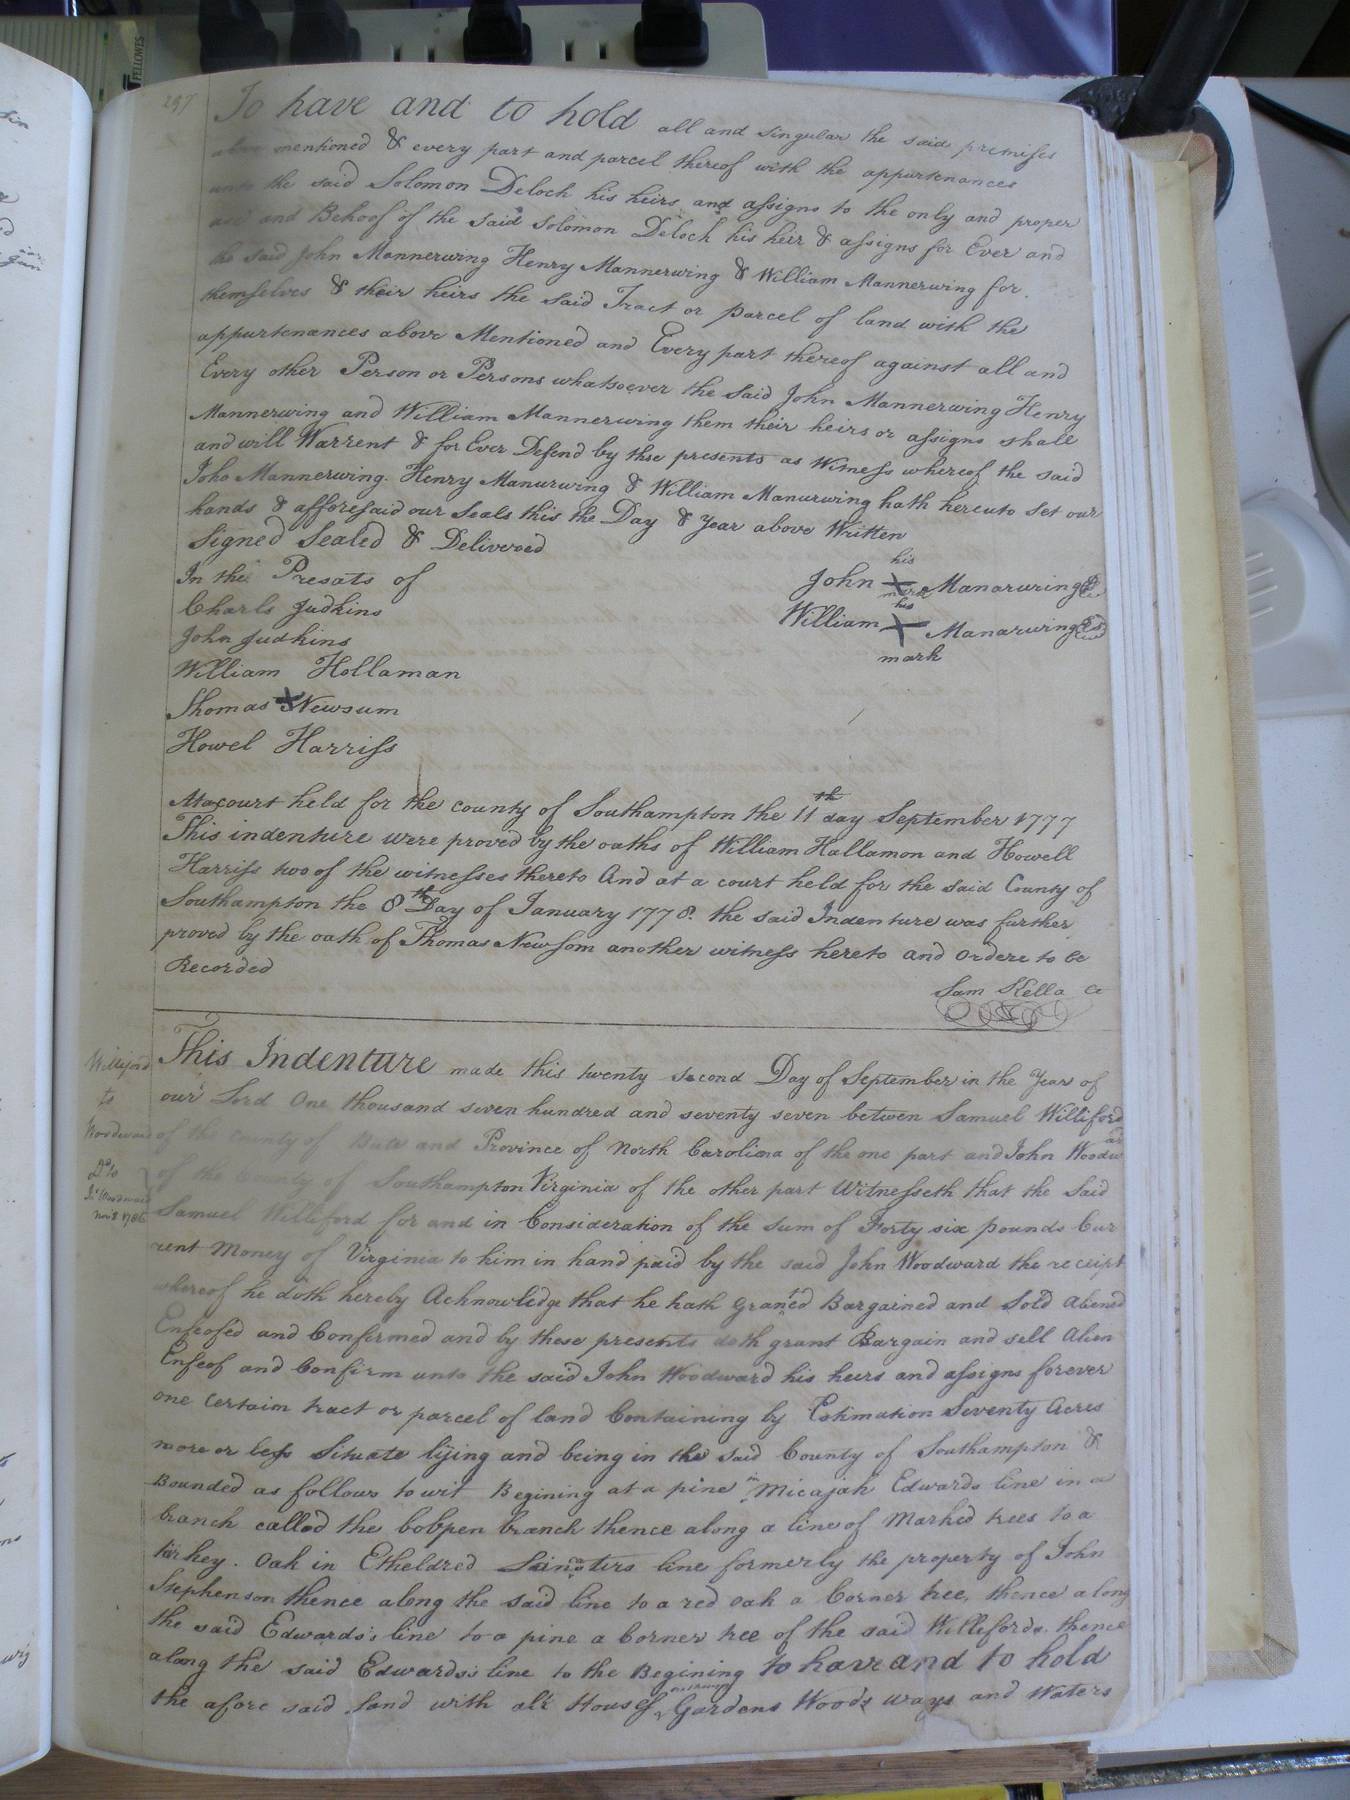 FELLOWES
297
To have and to hold all and singular the said premises
above mentioned & every part and parcel thereof with the appurtenances
unto the said Solomon Deloch his heirs and assigns to the only and proper
use and Behoof of the said Solomon Deloch his heir & assigns for Ever and
the said John Mannerwing Henry Mannerwing & William Mannerwing for
themselves & their heirs the said Tract or parcel of land with the
appurtenances above Mentioned and Every part thereof against all and
Every other Person or Persons whatsoever the said John Mannerwing Henry
Mannerwing and William Mannerwing them their heirs or assigns shall
and will Warrent & for Ever Defend by thse presents as Witness whereof the said
Joho Mannerwing. Henry Manurwing & William Manurwing hath hereuto set our
hands & afforesaid our Seals this the Day & Year above Written
Signed Sealed & Delivered
In the Presats of
his
John X Manarwing
mark
Charls Judkins
his
William X Manarwing
mark
John Judkins
William Hollaman
Thomas X Newsum
Howel Harriss
Ata court held for the county of Southampton the 11th day September 1777
This indenture were proved by the oaths of William Hallamon and Howell
Harriss two of the witnesses thereto And at a court held for the said County of
Southampton the 8th Day of January 1778. the said Indenture was further
proved by the oath of Thomas Newsom another witness hereto and ordere to be
Recorded
Sam Kella Cc
Williford
to
Woodward
Do to
Jno Woodward
1786
This Indenture made this twenty second Day of September in the Year of
our Lord One thousand seven hundred and seventy seven betwen Samuel Williford
of the County of Bute and Province of North Carolina of the one part and John Woodward
of the County of Southampton Virginia of the other part Witnesseth that the Said
Samuel Williford for and in Consideration of the sum of Forty six pounds Cur
rent Money of Virginia to him in hand paid by the said John Woodward the receipt
whereof he doth hereby Acknowledge that he hath Granted Bargained and Sold Aliened
Enfeofed and Confirmed and by these presents doth grant Bargain and sell Alien
Enfeof and Confirm unto the said John Woodward his heirs and assigns forever
one Certain tract or parcel of land Containing by Estimation Seventy Acres
more or less Situate lying and being in the said County of Southampton &
Bounded as follows to wit Begining at a pine in Micajah Edwards line in a
branch called the bobpen branch thence along a line of Marked trees to a
turkey. Oak in Etheldred line formerly the property of John
Stephenson thence along the said line to a red oak a Corner tree, thence along
the said Edwards's line to a pine a Corner tree of the said Willefords. thence
along the said Edwards's line to the Begining to have and to hold
the afore said land with all Houses Orchards Gardens Woods ways and Waters